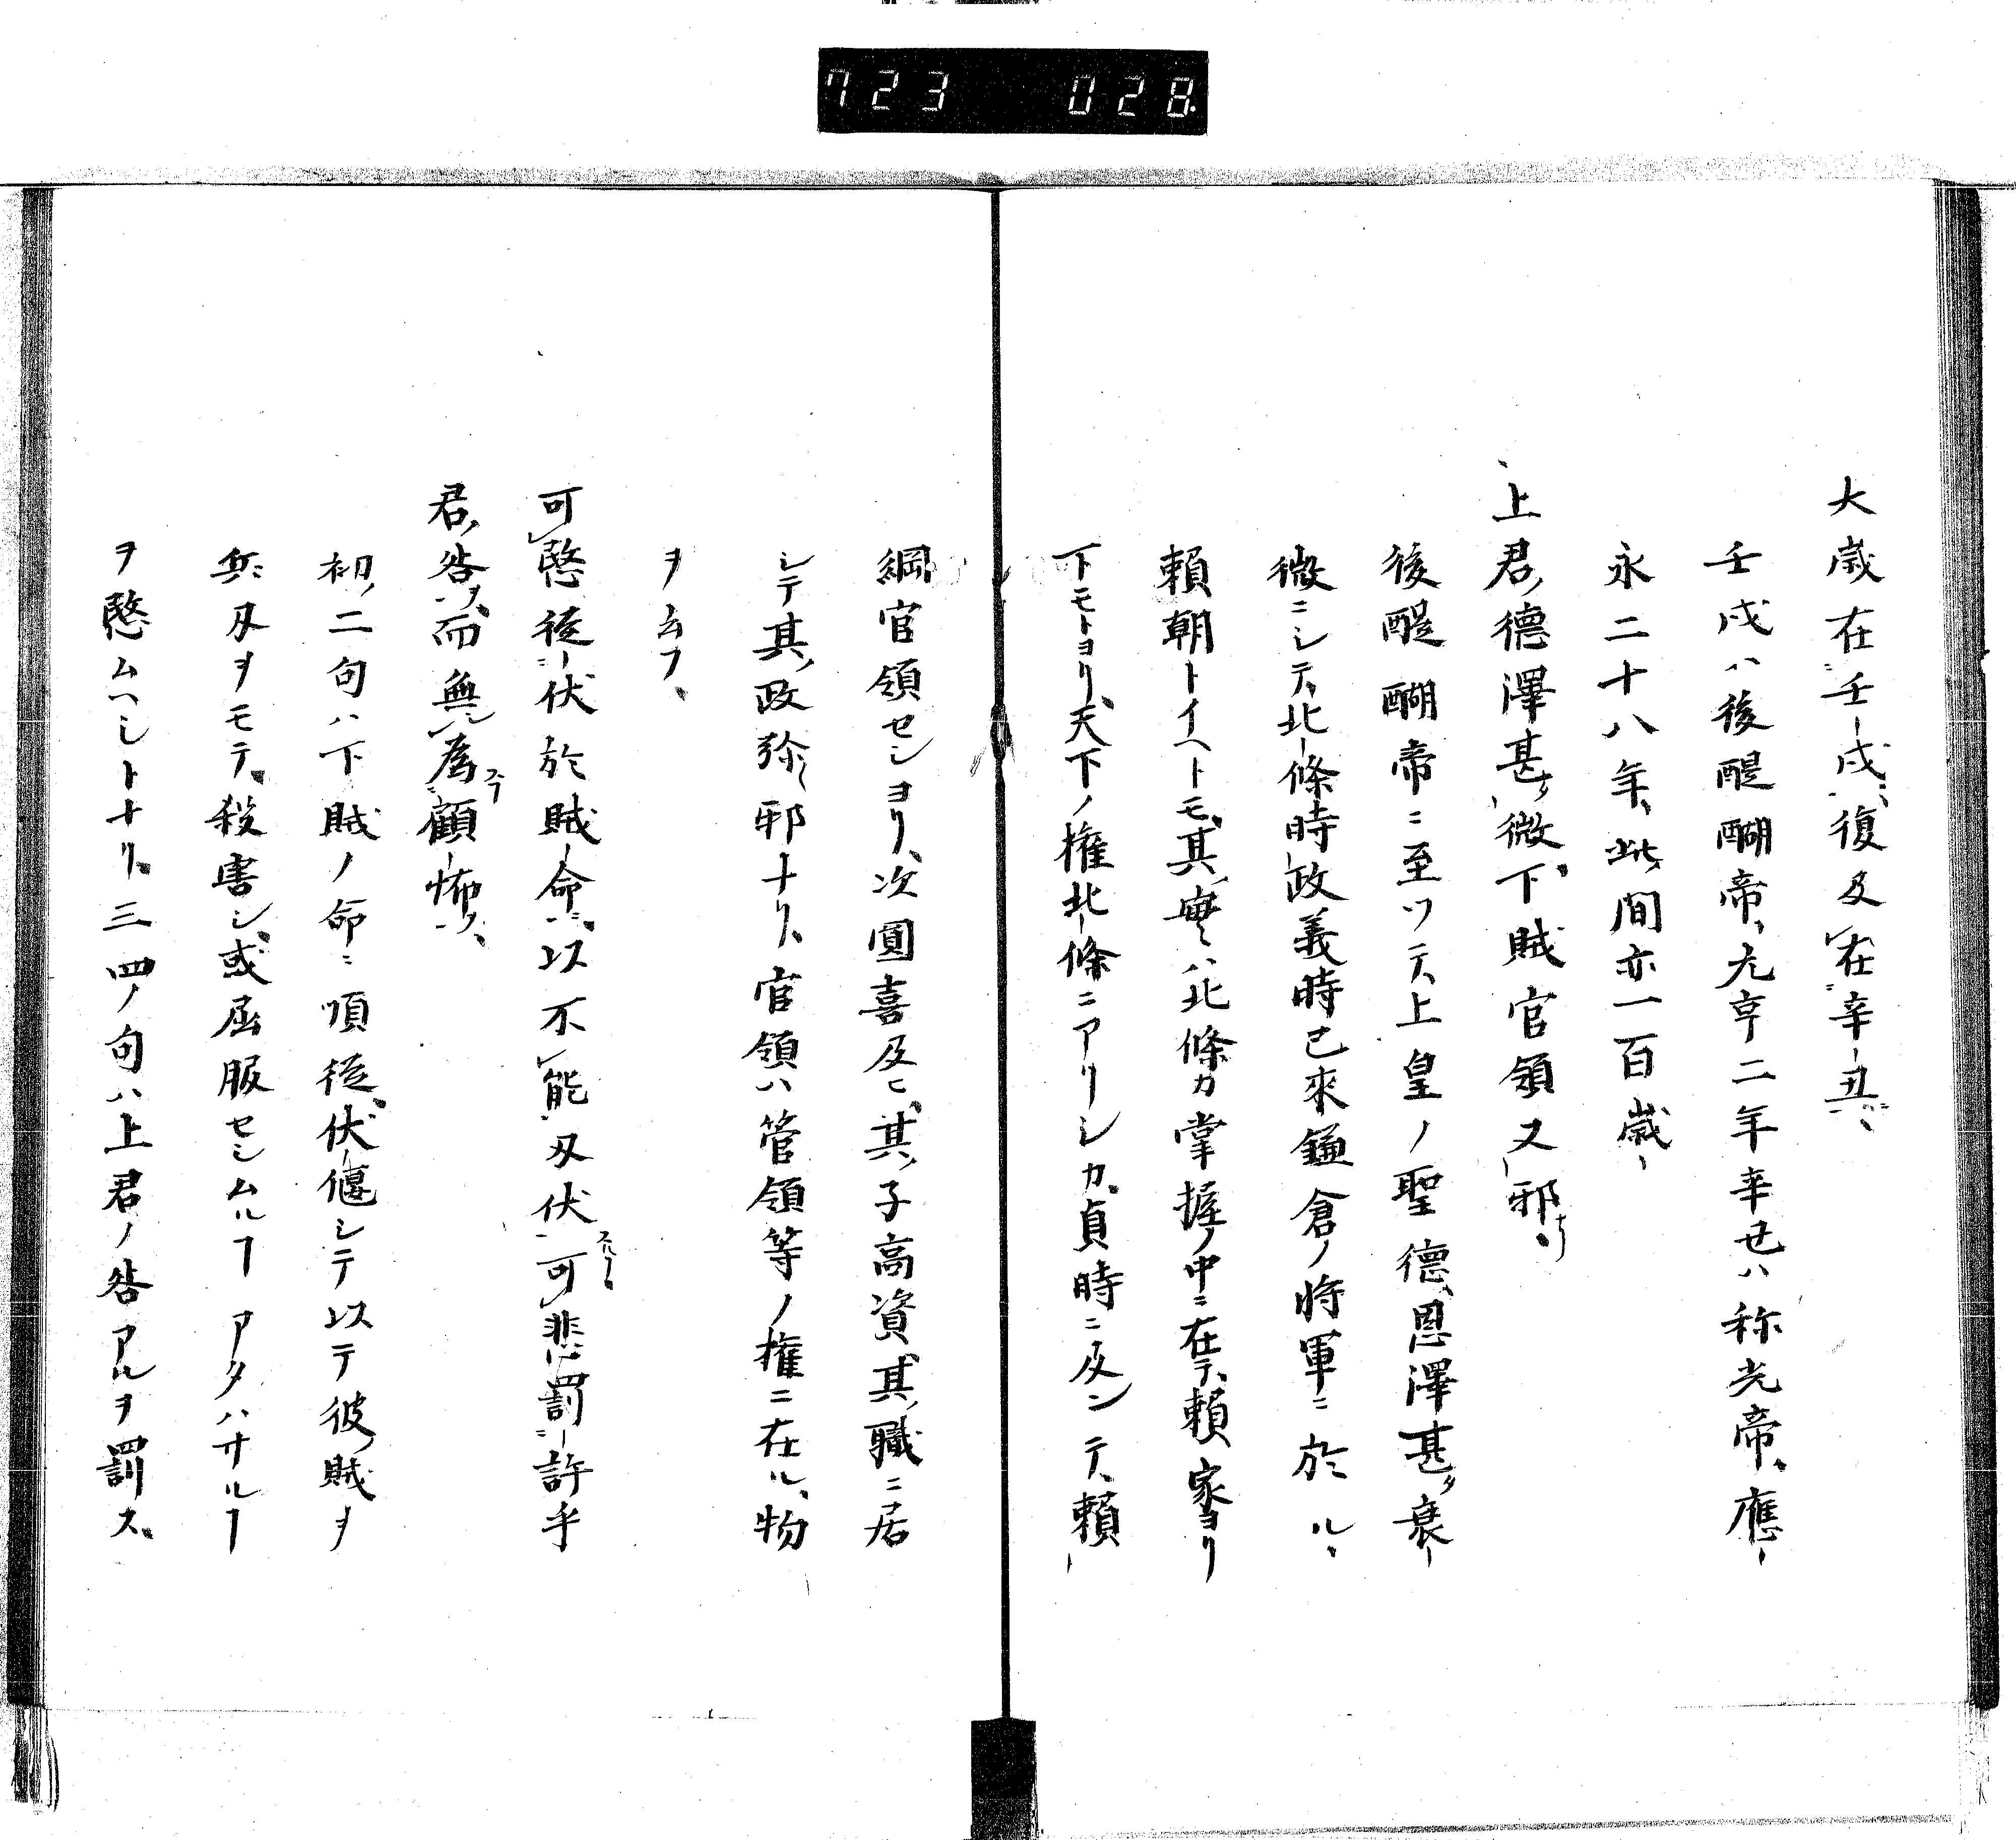 723 028
大歳在壬戌復及在辛丑、
壬戌ハ後醍醐帝、元亨二年辛丑ハ称光帝、應
永二十八年、此間亦一百歳
上君ノ德澤甚タ微下賊官領又邪ナリ
後醍醐帝ニ至ツテ、上皇ノ聖德恩澤甚タ衰
微ニシテ、北條時政義時已來鎌倉ノ將軍ニ於ル、
賴朝トイヘトモ、其實ハ北條カ掌握ノ中ニ在テ、賴家ヨリ
下モトヨリ、天下ノ権北條ニアリシカ、貞時ニ及ンテ、賴
綱官領セシヨリ、次圓喜及ヒ、其ノ子高資其ノ職ニ居
シテ其ノ政弥邪ナリ、官領ハ管領等ノ権ニ在ル、物
ヲ云フ、
可愍從伏於賊命ニ、以不能刄伏スルー、可悲罰許乎
君ノ咎ヲ、而無為顧怖ヲ、
初ノ二句ハ下賊ノ命ニ順從、伏偃シテ以テ彼賊ヲ
兵刄ヲモテ、殺害シ、或屈服セシムルヿアタハサルヿ
ヲ愍ムヘシトナリ、三四ノ句ハ上君ノ咎アルヲ罰ス、